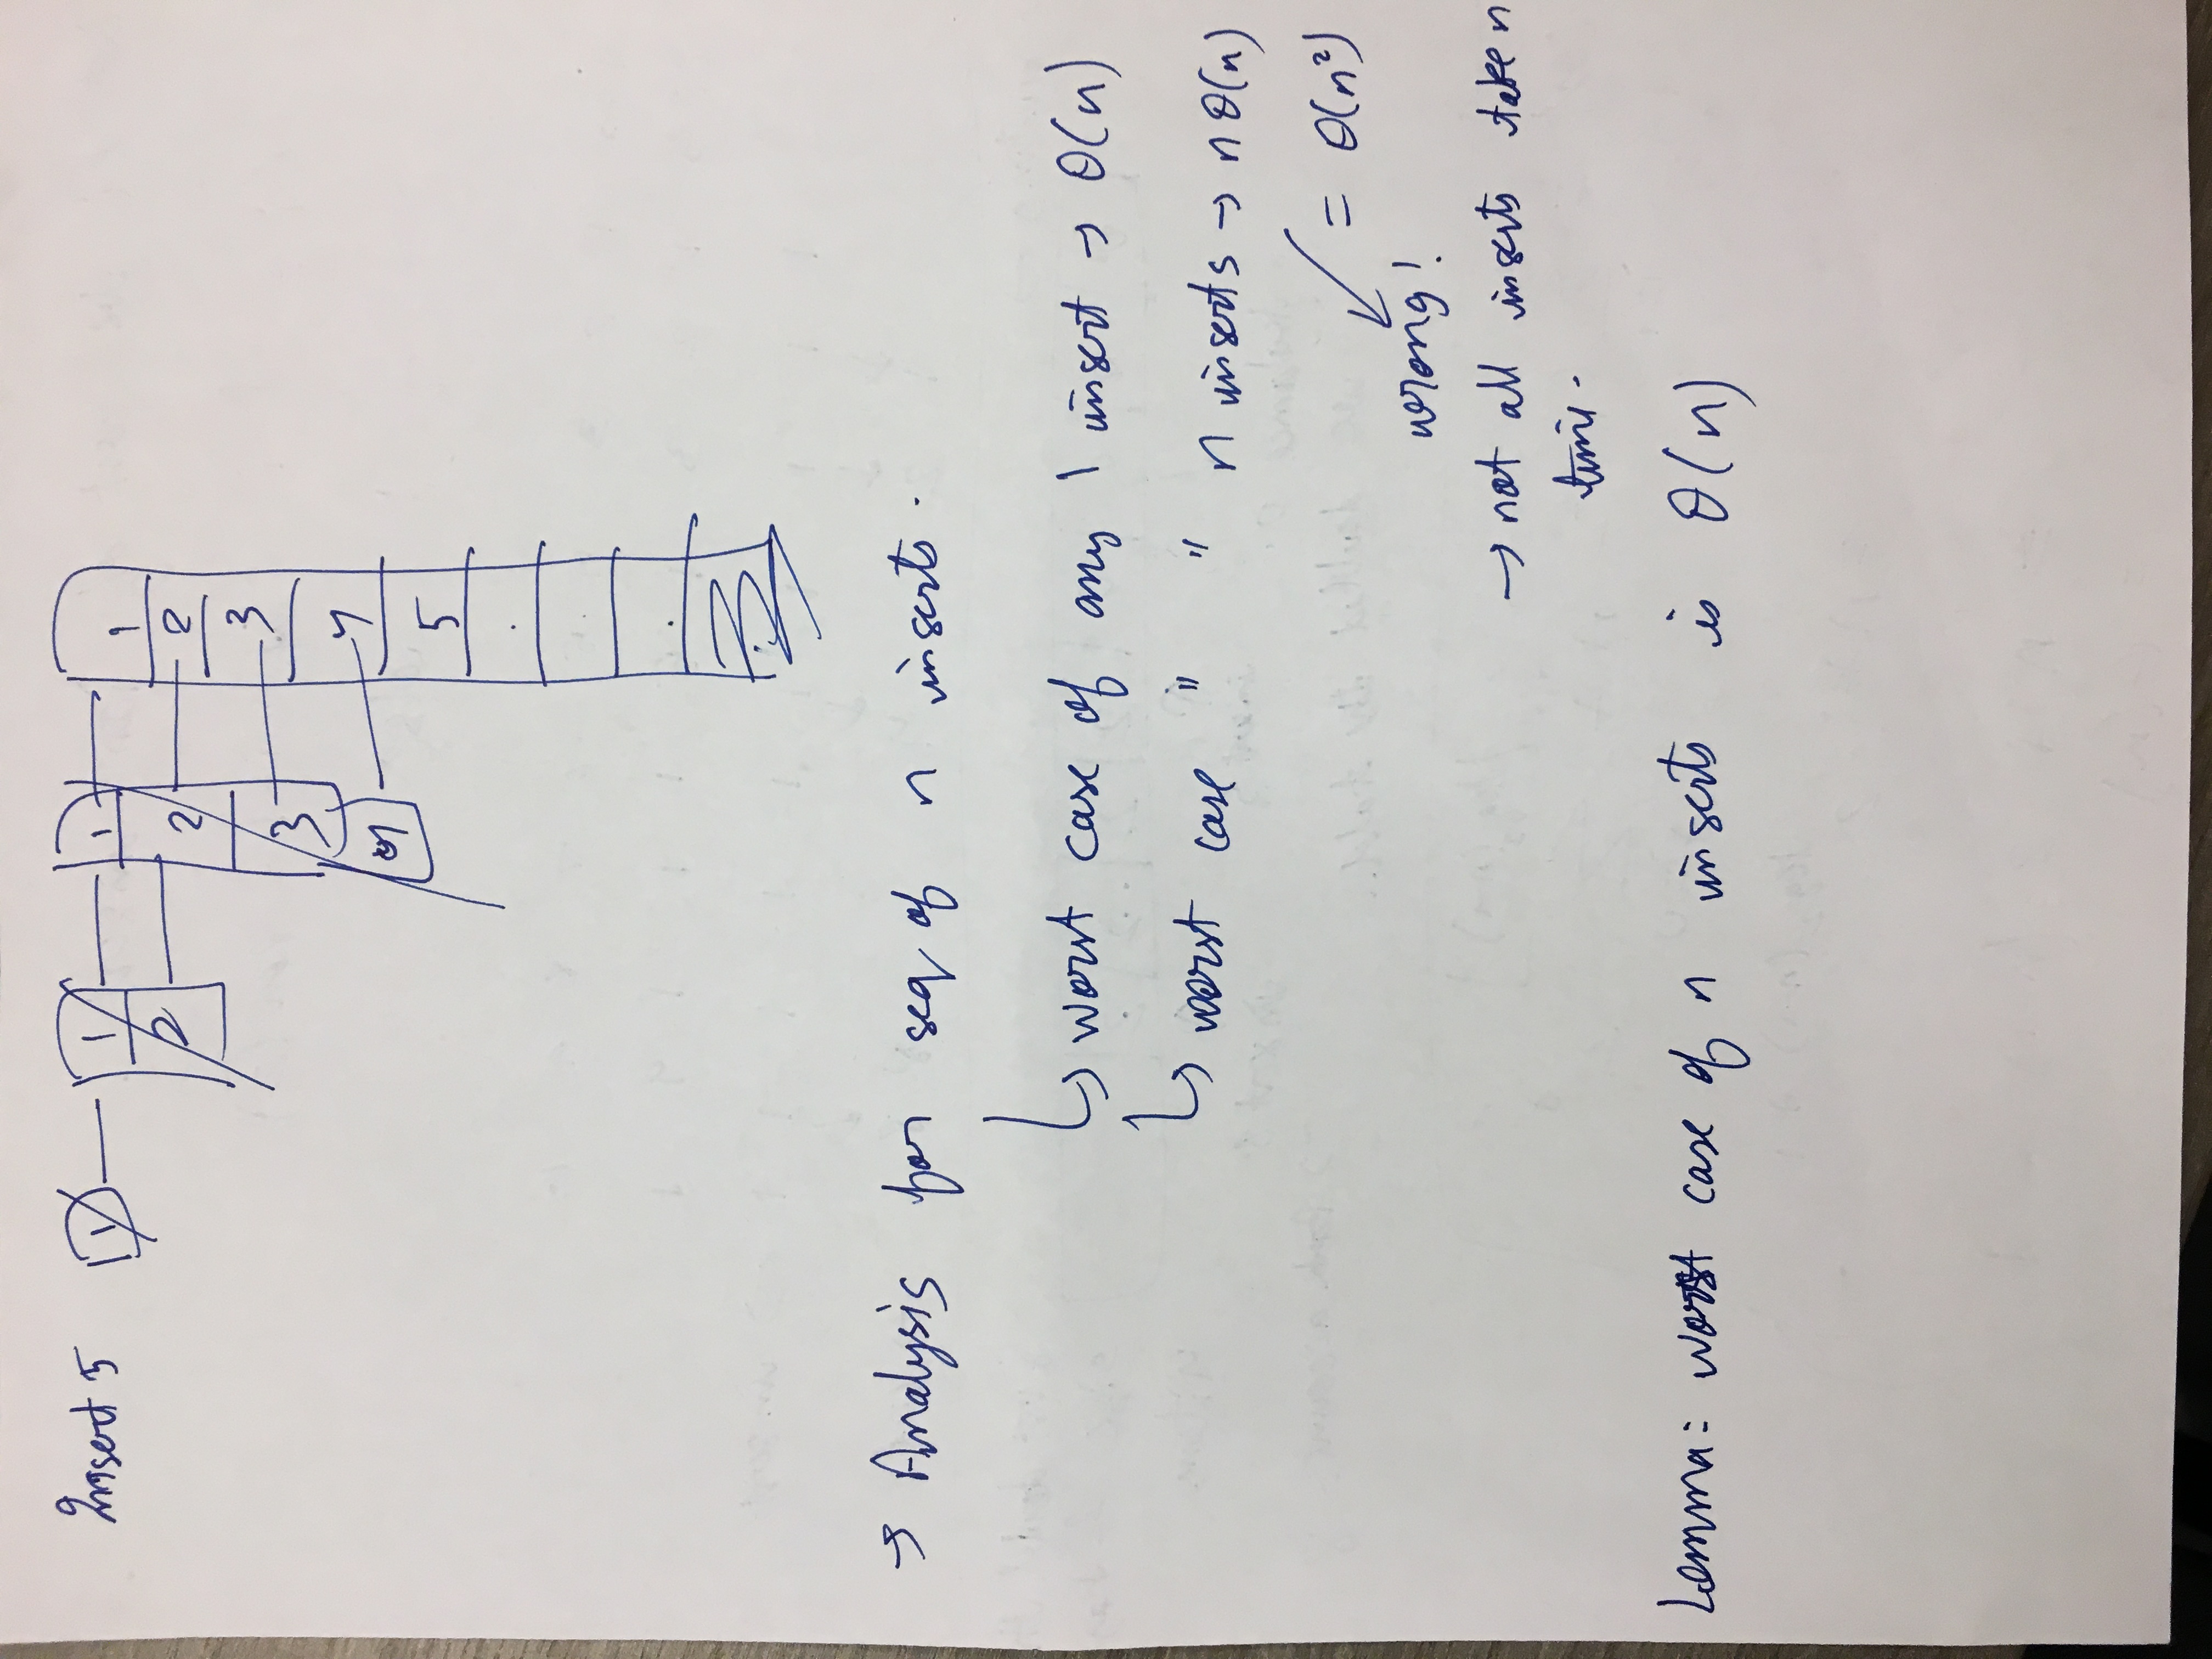 Insert 5
1
1
2
1
2
3
4
1
2
3
4
5
→ Analysis for seq of n inserts.
↳ worst case of any 1 insert → θ(n)
↳ worst case " " n inserts → n θ(n)
= θ(n²)
wrong!
→ not all inserts take n
time.
Lemma: worst case of n inserts is θ(n)